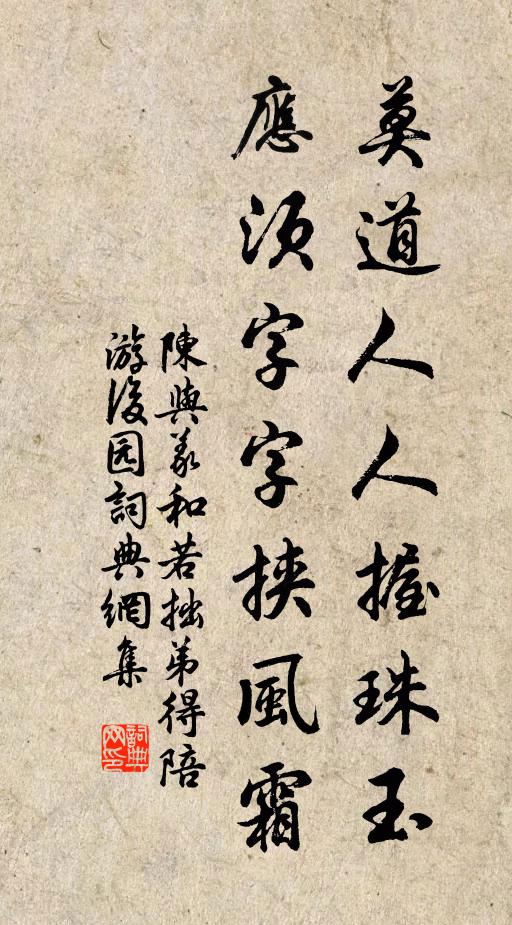 莫道人人握珠玉
應須字字挾風霜
陳與義和若拙弟得陪
游後园詞典網集
詞典网印